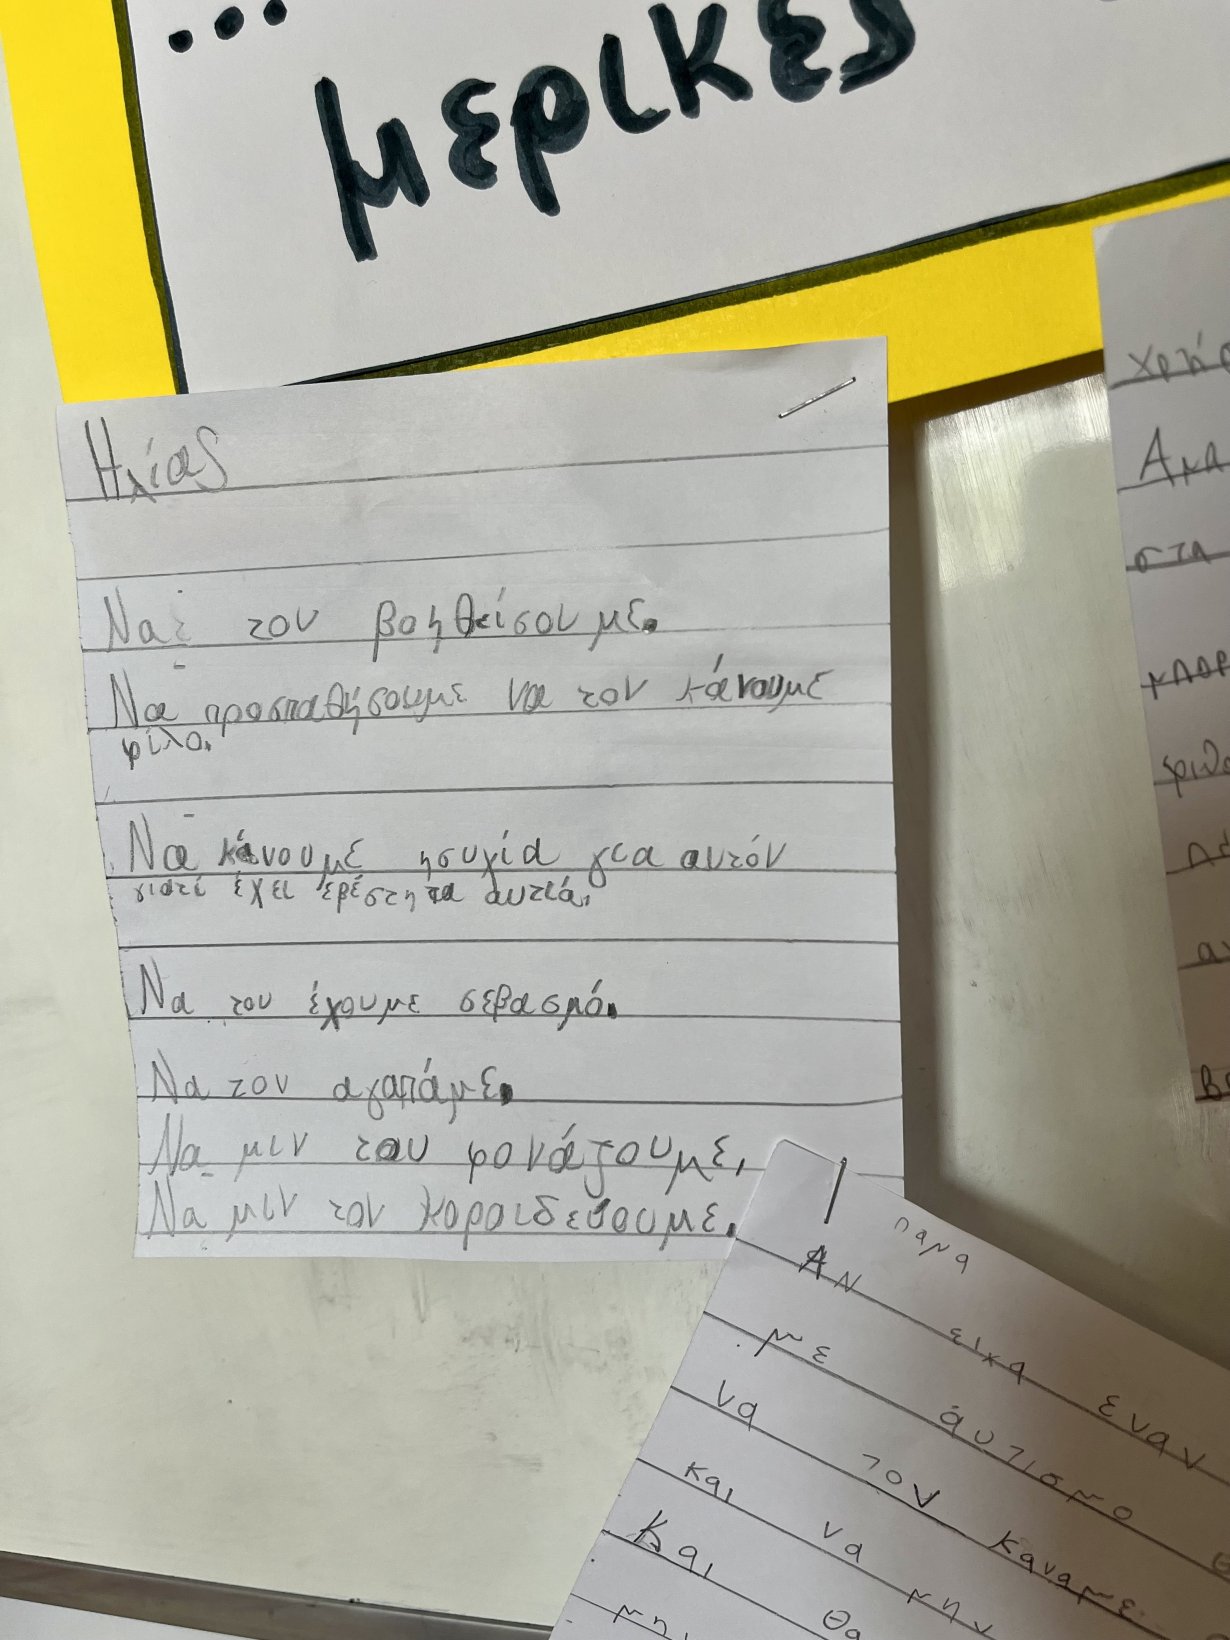 ... μερικές
Ηλίας
Να τον βοηθείσουμε.
Να προσπαθήσουμε να τον κάνουμε
φίλο.
Να κάνουμε ησυχία για αυτόν
γιατί έχει εβέστητα αυτιά.
Να του έχουμε σεβασμό.
Να τον αγαπάμε.
Να μιν του φονάζουμε.
Να μιν τον κοροιδεύουμε.
χρήσ
Ακα
στα
μπορ
βο
παμα
ΑΝ εικα εναν
με αυτισμο
να τον καναμε
και να μην
Και θα
μην